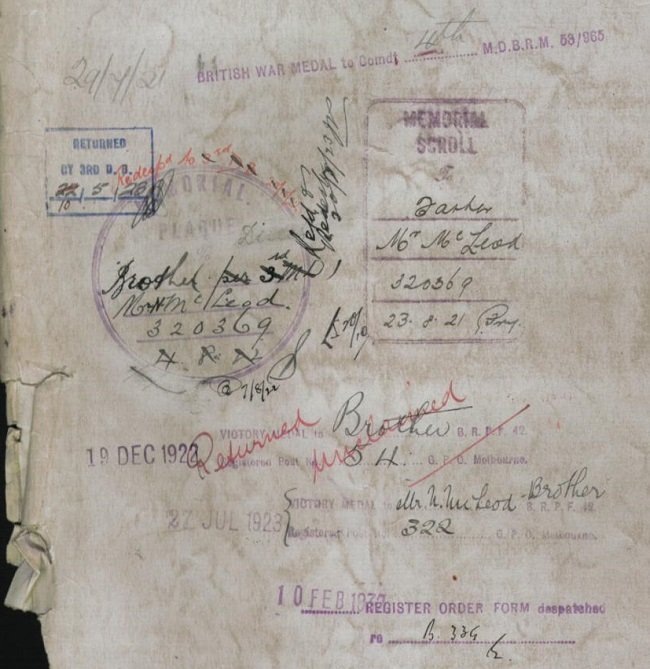 29/7/21
BRITISH WAR MEDAL to Comdt 4th M.D.B.R.M. 53/965
RETURNED
BY 3RD D.O.
5
MEMORIAL
PLAQUE
Brother per 3rd M.D.
Mr N. McLeod.
320369
4. 8. 22
@ 7/8/22
MEMORIAL
SCROLL
To
Father
Mr McLeod
320369
23.8.21
19 DEC 1922
Returned Unclaimed
VICTORY MEDAL to Brother B.R.P.F. 42.
Registered Post No. 54 G.P.O. Melbourne.
27 JUL 1923
VICTORY MEDAL to Mr. N. McLeod - Brother B.R.P.F. 42.
Registered Post No. 322 G.P.O. Melbourne.
10 FEB
REGISTER ORDER FORM despatched
re B. 339